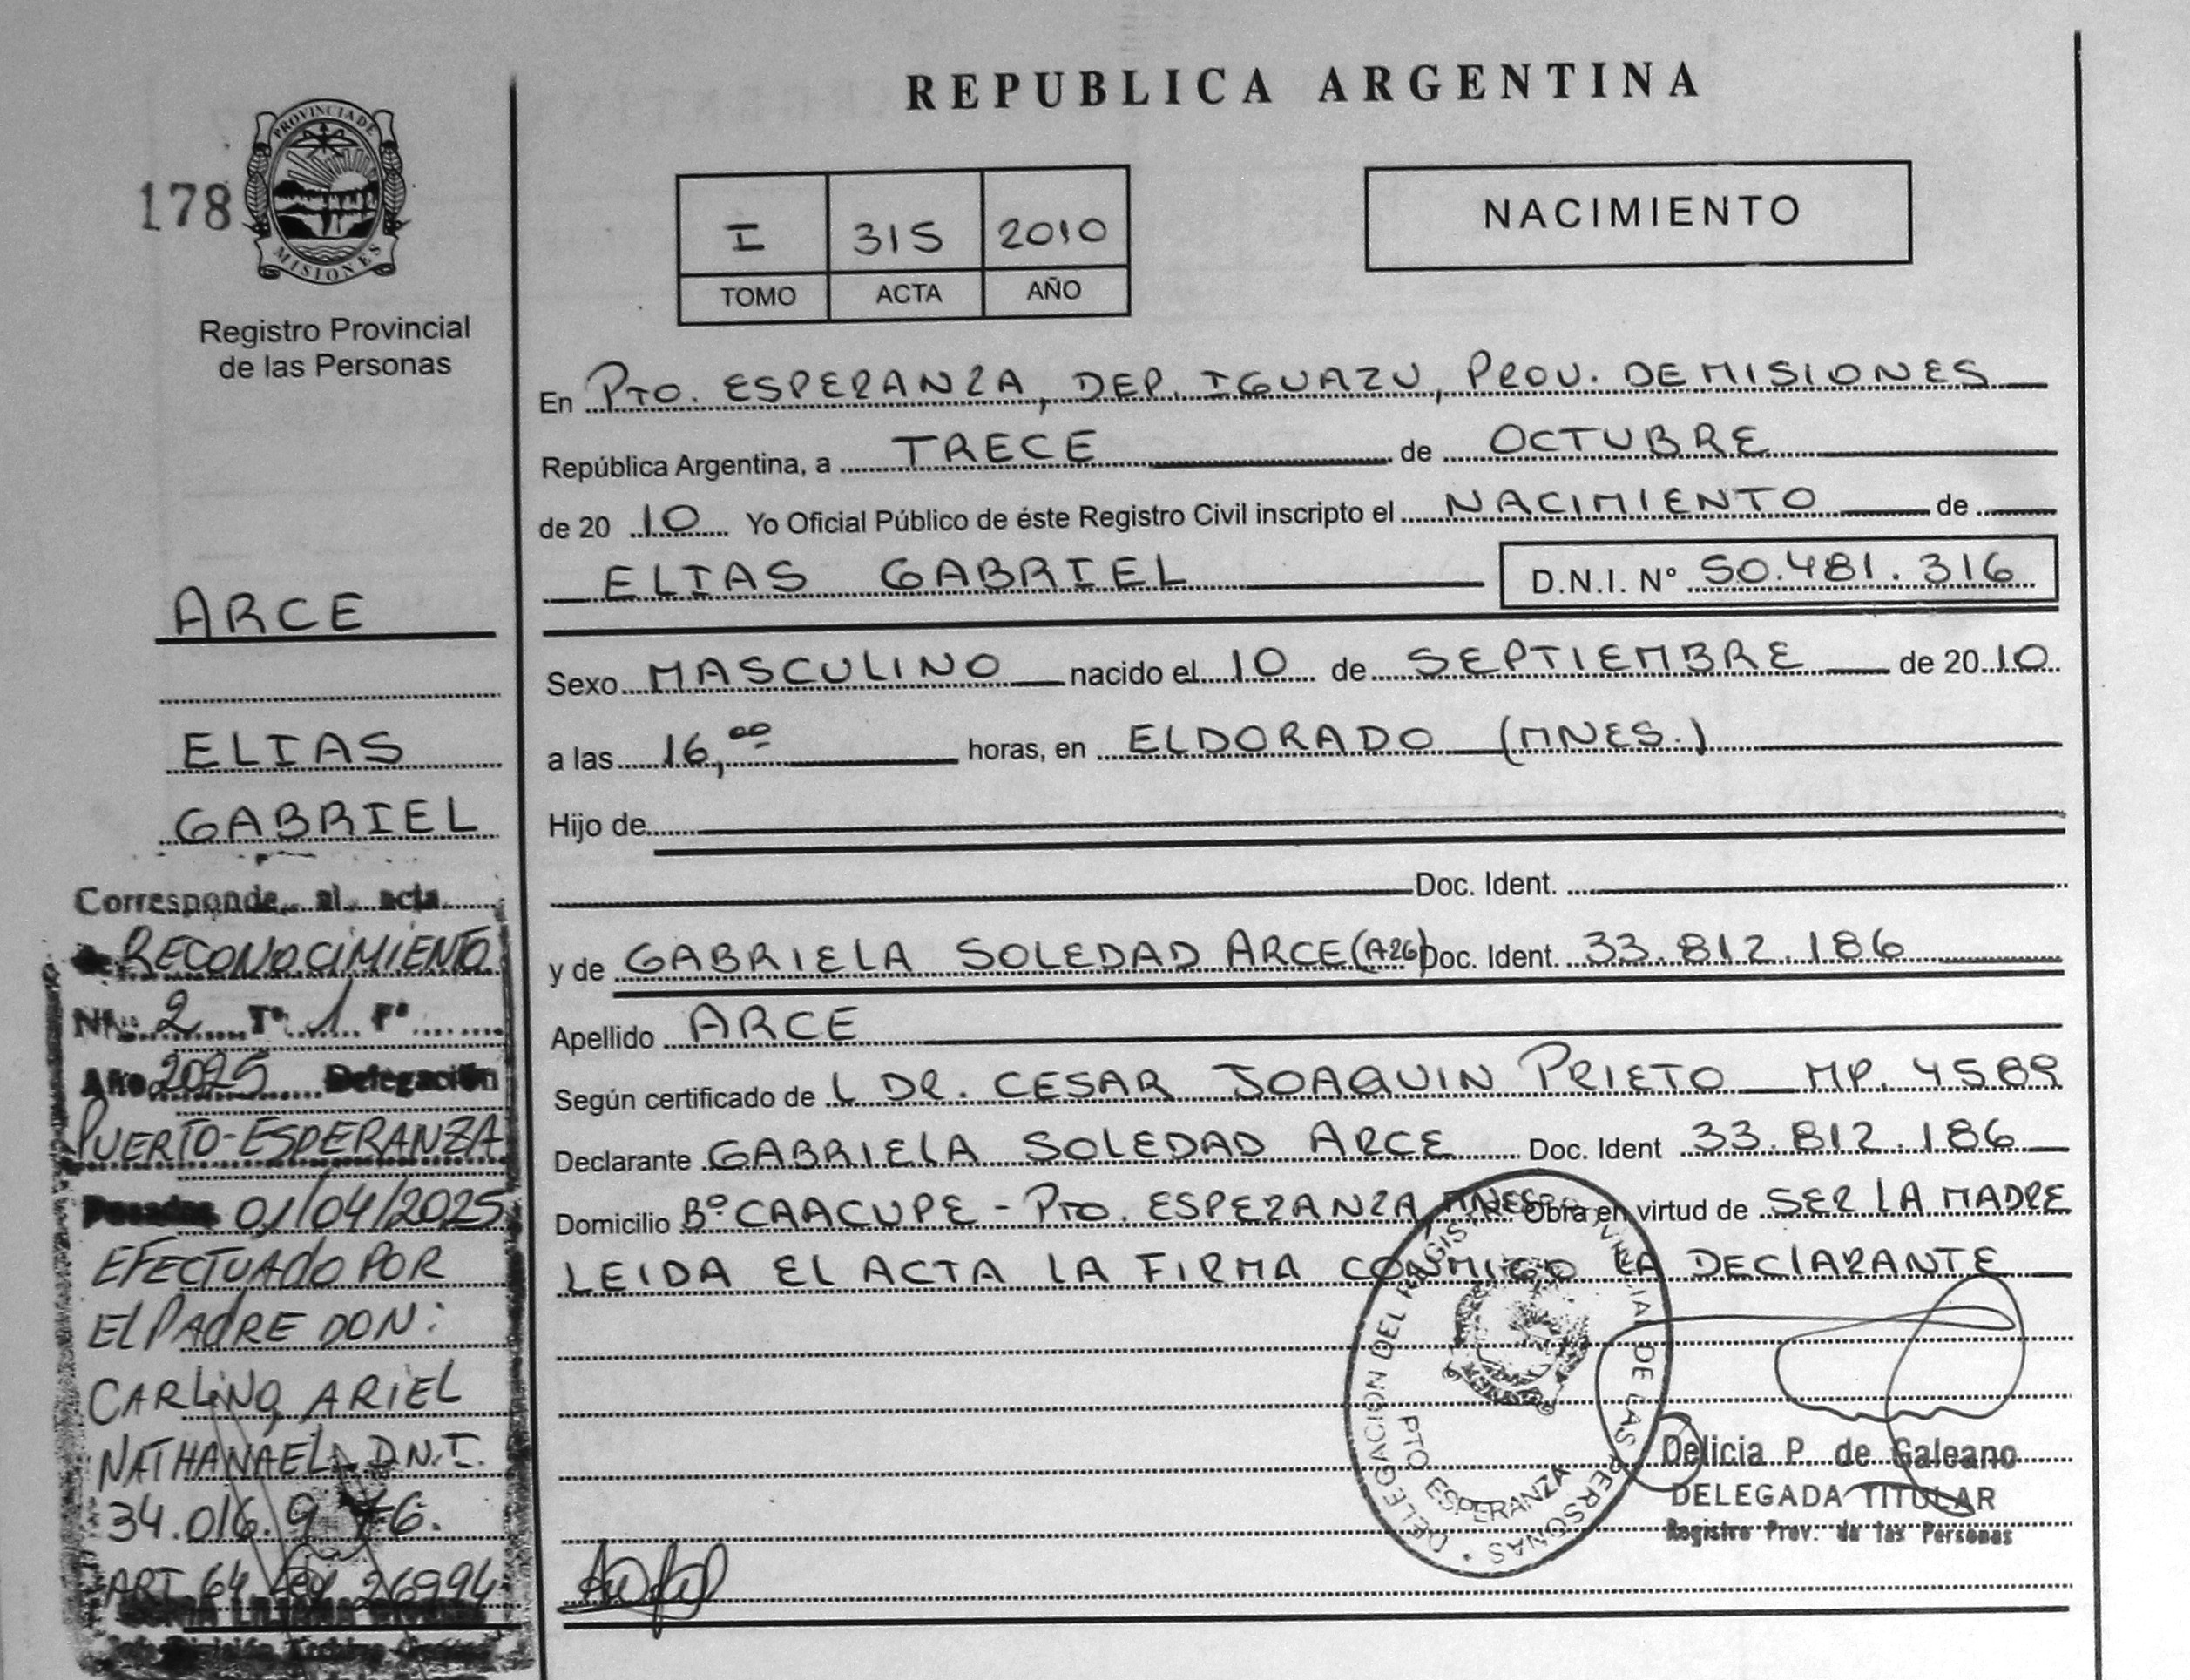 REPUBLICA ARGENTINA
178
PROVINCIA DE
MISIONES
Registro Provincial
de las Personas
I 315 2010
TOMO ACTA AÑO
NACIMIENTO
En PTO. ESPERANZA, DEP. IGUAZU, PROV. DE MISIONES
República Argentina, a TRECE de OCTUBRE
de 20 10 Yo Oficial Público de éste Registro Civil inscripto el NACIMIENTO de
ELIAS GABRIEL D.N.I. Nº 50.481.316
Sexo MASCULINO nacido el 10 de SEPTIEMBRE de 20 10
a las 16,00 horas, en ELDORADO (MNES.)
Hijo de
Doc. Ident.
y de GABRIELA SOLEDAD ARCE (A26) Doc. Ident. 33.812.186
Apellido ARCE
Según certificado de L DR. CESAR JOAQUIN PRIETO MP. 4589
Declarante GABRIELA SOLEDAD ARCE Doc. Ident 33.812.186
Domicilio Bº CAACUPE - PTO. ESPERANZA MNES Obra en virtud de SER LA MADRE
LEIDA EL ACTA LA FIRMA CONMIGO LA DECLARANTE
DELEGACION DEL REGISTRO PROVINCIAL DE LAS PERSONAS
PTO ESPERANZA
Delicia P. de Galeano
DELEGADA TITULAR
Registro Prov. de las Personas
ARCE
ELIAS
GABRIEL
Corresponde al acta
RECONOCIMIENTO
Nº 2 Tº 1 Fº
Año 2025 Delegación
PUERTO-ESPERANZA
Posadas 01/04/2025
EFECTUADO POR
El PADRE DON:
CARLINO, ARIEL
NATHANAEL D.N.I.
34.016.976.
ART. 64 Ley 26994
Jefe División Archivo General